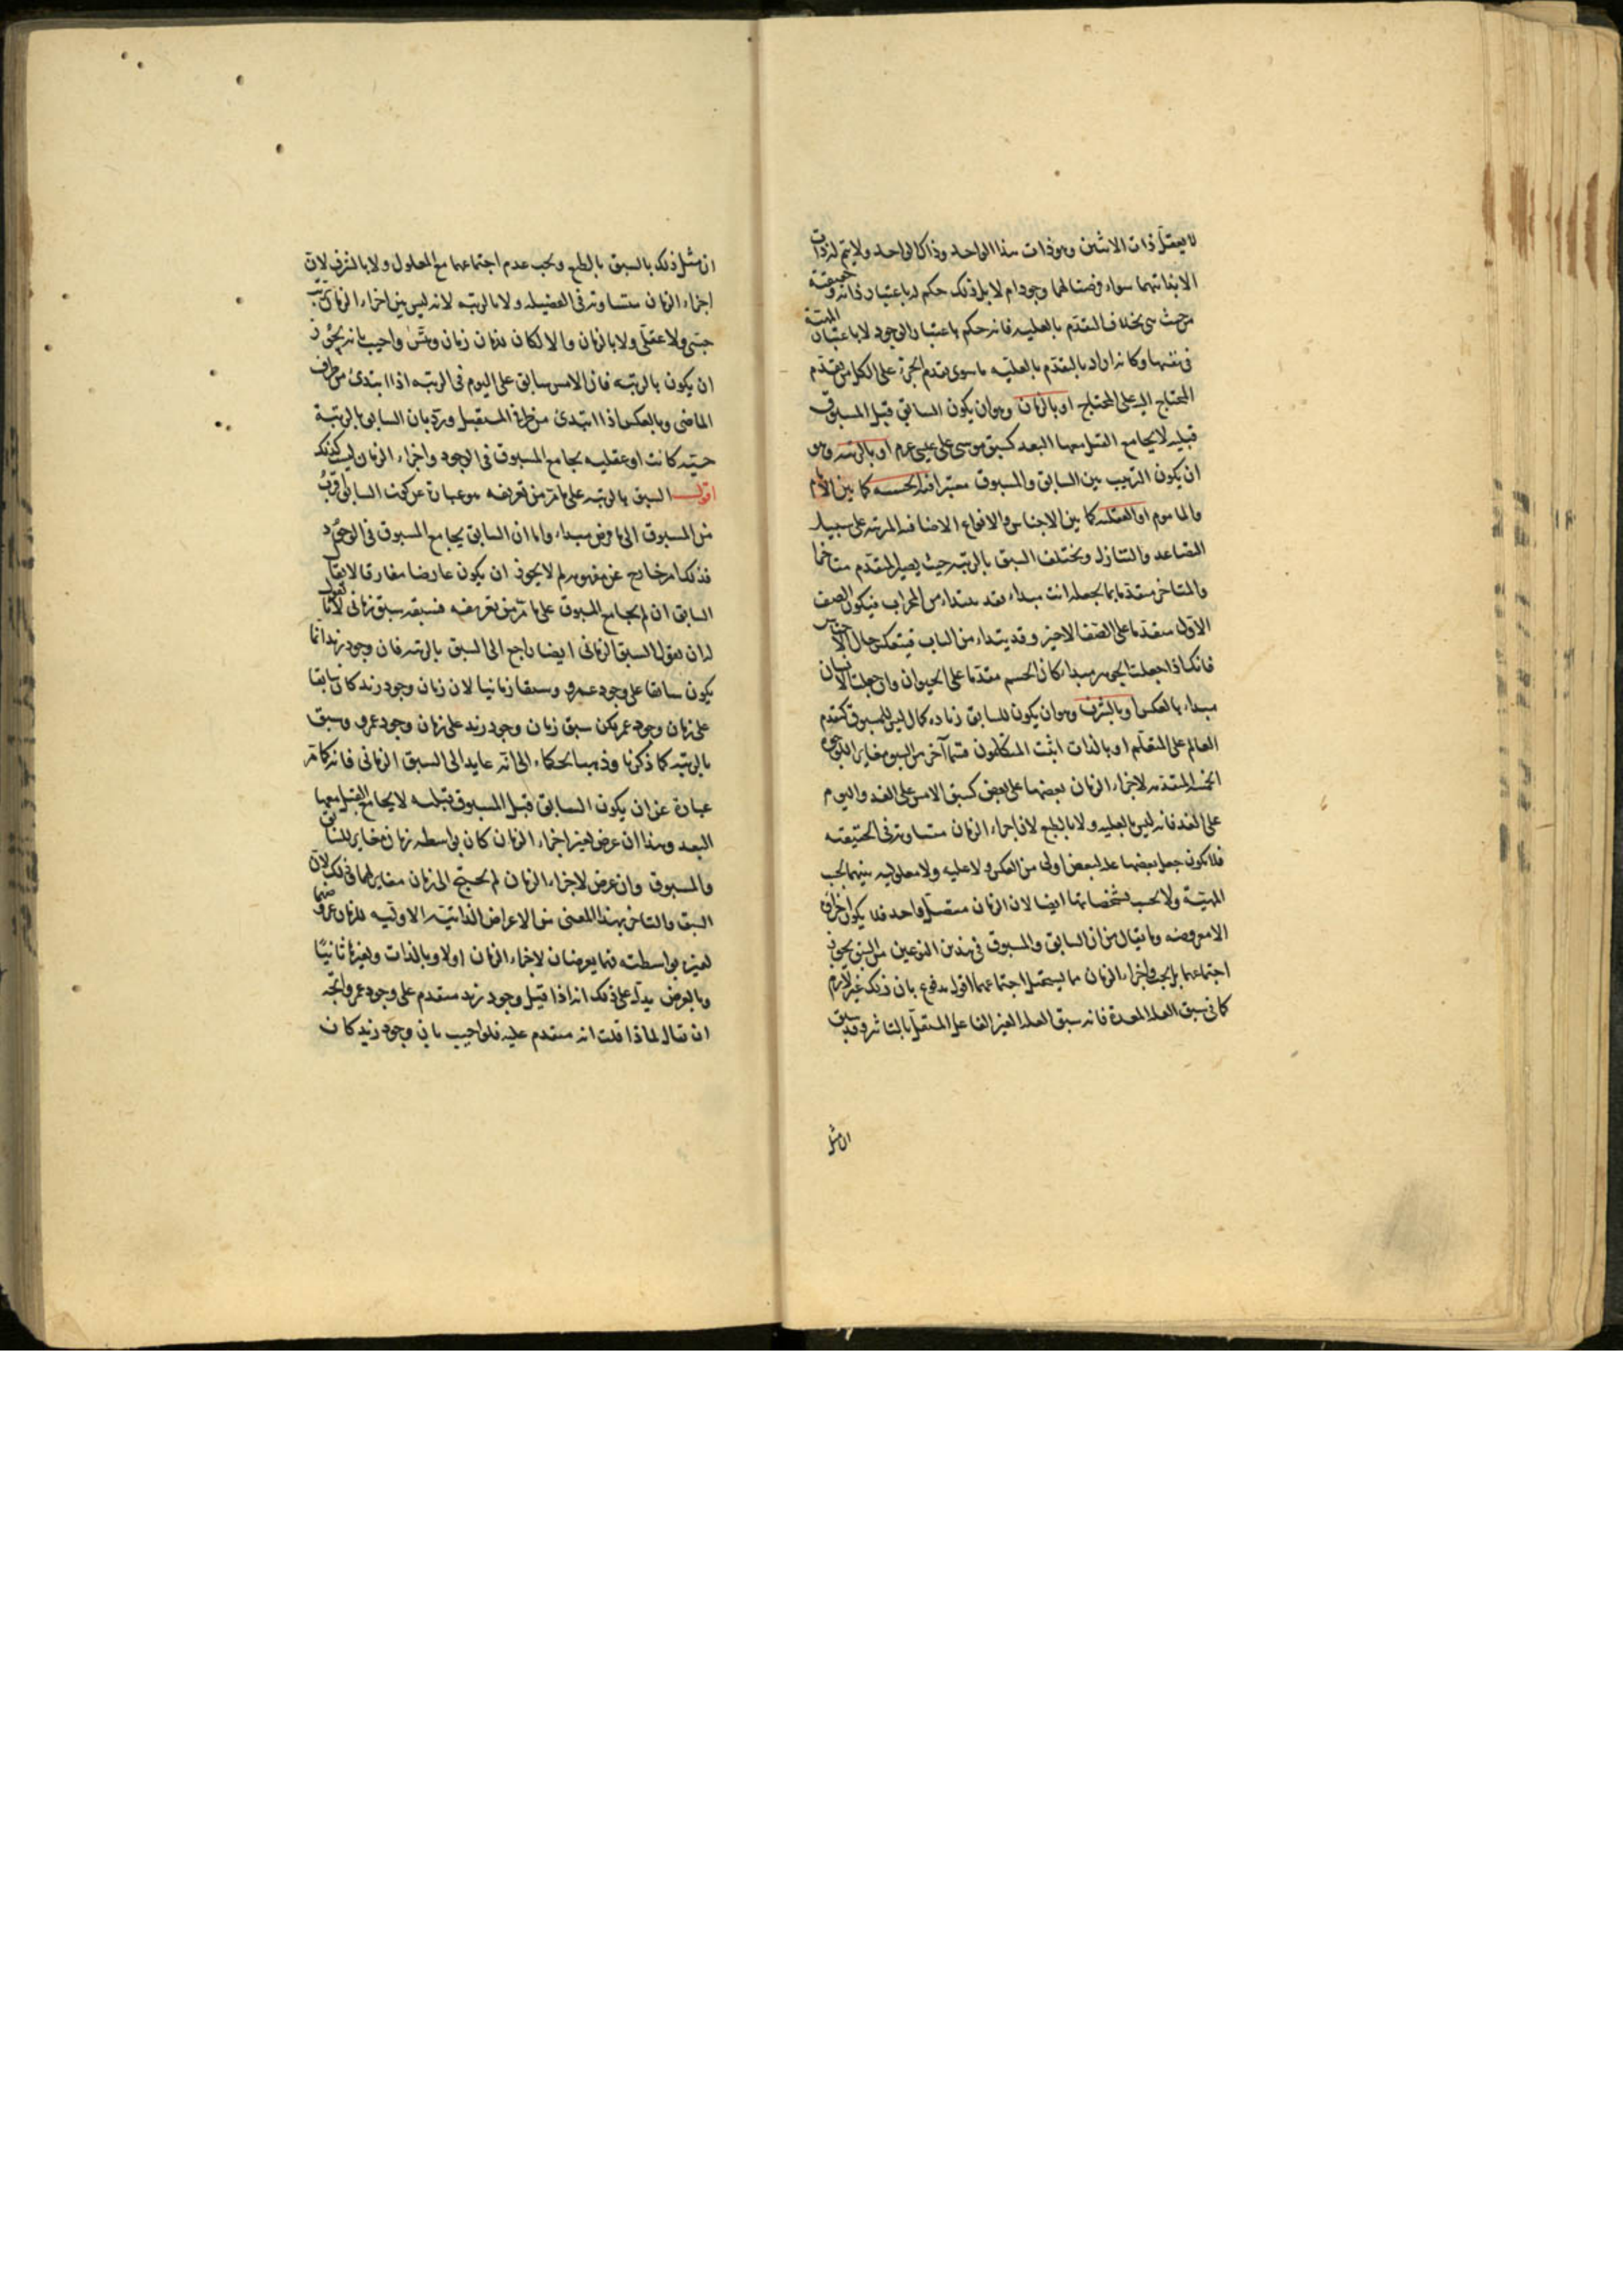 لا يعقل ذات الاثنين وهو ذات هذا الواحد وذاك الواحد ولا يتم لذات
الا بذاتيهما سواء فرضت لهما وجود ام لا بل ذلك حكم له باعتبار ذاته وحقيقته
من حيث هى بخلاف التقدم بالعليه فانه حكم باعتبار الوجود لا باعتبار المهية
فى نفسها وكانه اراد بالتقدم بالعلية ما سوى تقدم الجزء على الكل من تقدم
المحتاج اليه على المحتاج او بالزمان وهو ان يكون السابق قبل المسبوق
قبليه لا يجامع القبل معها البعد كسبق موسى على عيسى عم او بالرتبه وهو
ان يكون الترتيب بين السابق والمسبوق معتبرا فيه الحسيه كما بين الامام
والماموم او العقليه كما بين الاجناس والانواع الاضافيه المرتبه على سبيل
التصاعد والتنازل ويختلف السبق بالرتبه حيث يصير المتقدم متاخرا
والمتاخر متقدما بما يجعله انت مبداء فقد يبتداء من المحراب فيكون الصف
الاول متقدما على الصف الاخير وقد يبتداء من الباب فينعكس حال الاجناس
فانك اذا جعلت الجوهر مبداء كان الجسم متقدما على الحيوان وان جعلت الانسان
مبداء بالعكس او بالشرف وهو ان يكون للسابق زياده كمال ليس للمسبوق كتقدم
العالم على المتعلم او بالذات اثبت المتكلمون قسما آخر من السبق مغاير للوجوه
الخمسة المتقدمه لاجزاء الزمان بعضها على بعض كسبق الامس على الغد واليوم
على الغد فانه ليس بالعليه ولا بالطبع لان اجزاء الزمان متساويه فى الحقيقته
فلا يكون جعل بعضها علة لبعض اولى من العكس ولا عليه ولا معلوليه بينهما بحسب
المهيّة ولا بحسب تشخصاتها ايضا لان الزمان متصل واحد فلا يكون اجزاؤه
الا مفروضه وما يقال من ان السابق والمسبوق فى هذين النوعين من السبق يجوز
اجتماعهما بل يجب واجزاء الزمان مما يستحيل اجتماعهما اقول مدفوع بان ذلك غير لازم
كما فى سبق العله المعدة فانه سبق العله الغير الفاعل المستقل بالتاثير وقد سبق
ان مثل
ان مثل ذلك بالسبق بالطبع ويجب عدم اجتماعها مع المعلول ولا بالشرف لان
اجزاء الزمان متساويه فى الفضيله ولا بالرتبه لانه ليس بين اجزاء الزمان ترتيب
حسّى ولا عقلى ولا بالزمان والا لكان للزمان زمان وتس واجيب بانه يجوز
ان يكون بالرتبه فان الامس سابق على اليوم فى الرتبه اذا ابتدئ من طرف
الماضى وبالعكس اذا ابتدئ من طرف المستقبل ورد بان السابق بالرتبة
حسيّه كانت او عقليه يجامع المسبوق فى الوجود واجزاء الزمان ليست كذلك
اقول السبق بالرتبه على ما مرّ من تعريفه هو عبارة عن كون السابق اقرب
من المسبوق الى ما فرض مبداء واما ان السابق يجامع المسبوق فى الوجود
فذلك امر خارج عن مفهومه لم لا يجوز ان يكون عارضا مفارقا لا يقال
السابق ان لم يجامع المسبوق على ما مرّ من تعريفه فسبقه سبق زمانى لانا نقول
لنا ان نقول السبق الزمانى ايضا راجع الى السبق بالرتبه فان وجود زيد انما
يكون سابقا على وجود عمرو وسبقا زمانيا لان زمان وجود زيد كان سابقا
على زمان وجود عمرو لكن سبق زمان وجود زيد على زمان وجود عمرو وسبق
بالرتبه كما ذكرنا وذهب الحكماء الى انه عايد الى السبق الزمانى فانه كما مر
عبارة عن ان يكون السابق قبل المسبوق قبليه لا يجامع القبل معها
البعد وهذا ان عرض لغير اجزاء الزمان كان بواسطه زمان مغاير للسابق
والمسبوق وان عرض لاجزاء الزمان لم يحتج الى زمان مغاير لهما فى ذلك لان
السبق والتاخر بهذا المعنى من الاعراض الذاتية الاوليه للزمان عروضهما
لغيره بواسطته فهما يعرضان لاجزاء الزمان اولا وبالذات ولغيرها ثانيا
وبالعرض يدل على ذلك انه اذا قيل وجود زيد متقدم على وجود عمرو اتجه
ان يقال لماذا قلت انه متقدم عليه فلو اجيب بان وجود زيد كان